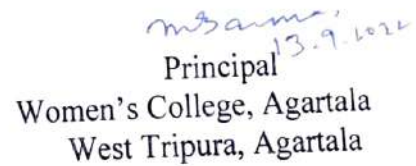 13.9.2022
Principal
Women's College, Agartala
West Tripura, Agartala